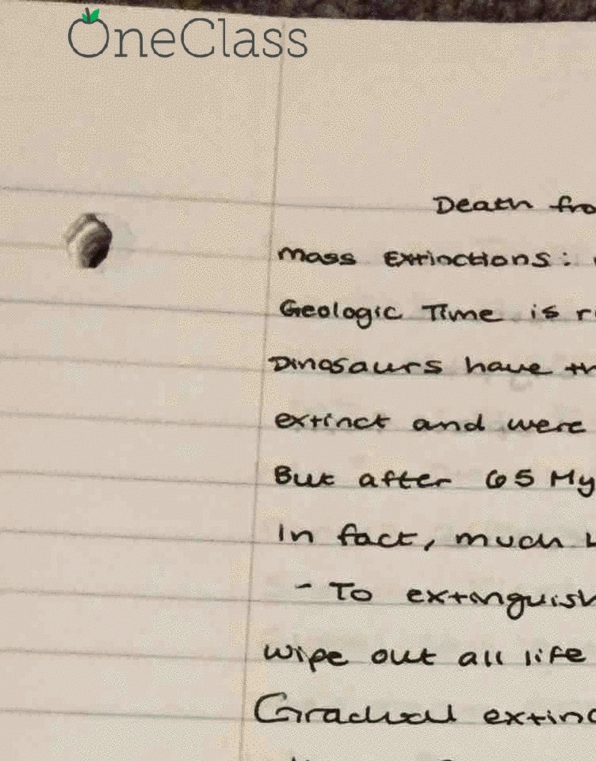 OneClass
Death fro
Mass Extinctions:
Geologic Time is r
Dinosaurs have th
extinct and were
But after 65 My
In fact, much
- To extinguish
wipe out all life
Gradual extinc